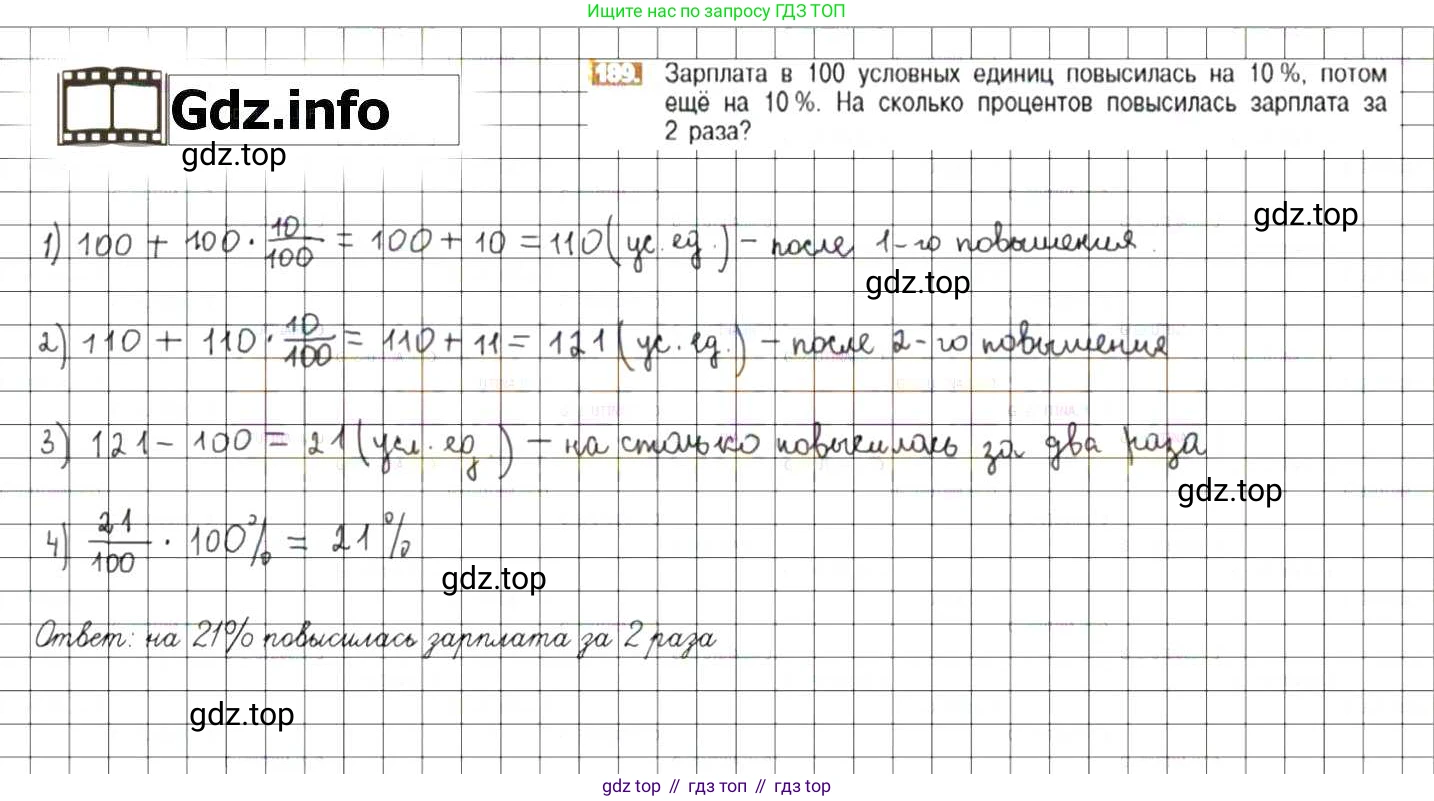 Ищите нас по запросу ГДЗ ТОП
Gdz.info
gdz.top
189. Зарплата в 100 условных единиц повысилась на 10 %, потом
ещё на 10 %. На сколько процентов повысилась зарплата за
2 раза?
gdz.top
1) 100 + 100 · 10/100 = 100 + 10 = 110 (ус. ед.) – после 1-го повышения.
gdz.top
2) 110 + 110 · 10/100 = 110 + 11 = 121 (ус. ед.) – после 2-го повышения
3) 121 – 100 = 21 (усл. ед.) – на столько повысилась за два раза
gdz.top
4) 21/100 · 100% = 21%
gdz.top
Ответ: на 21% повысилась зарплата за 2 раза
gdz.top
gdz top // гдз топ // гдз top